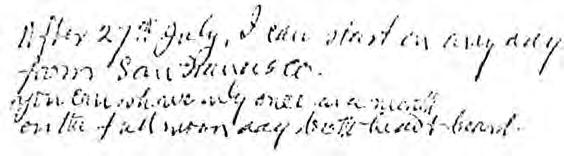 After 27th July, I can start on any day
from San Francisco.
You can shave only once in a month
on the full moon day both head & beard.